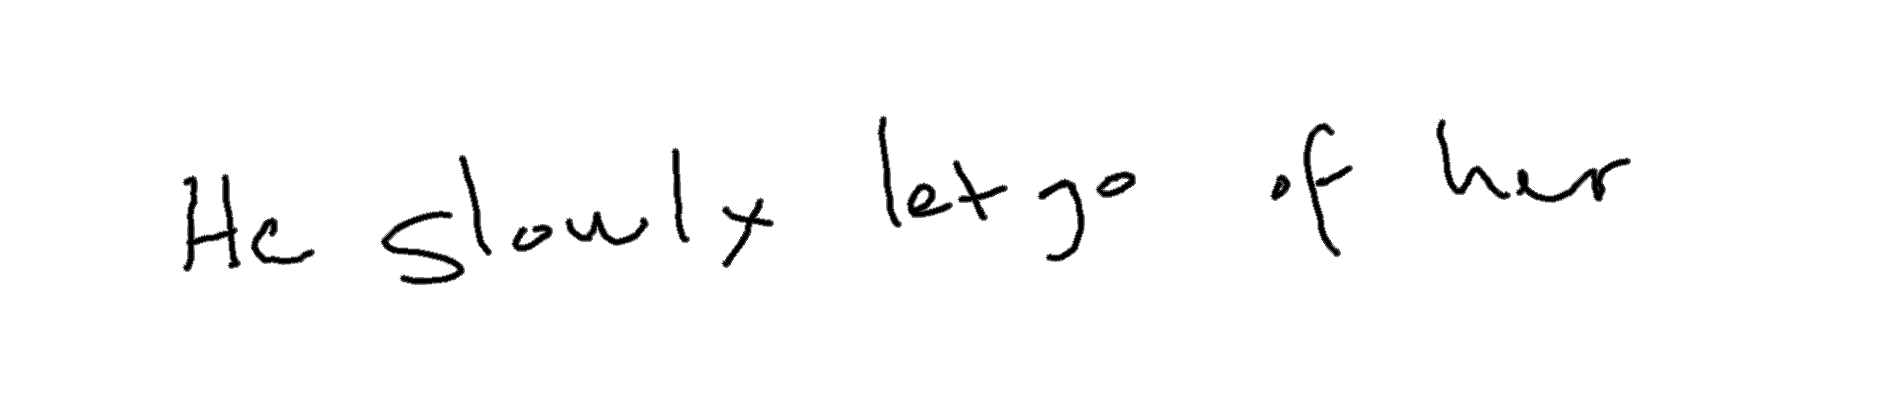 He slowly let go of her